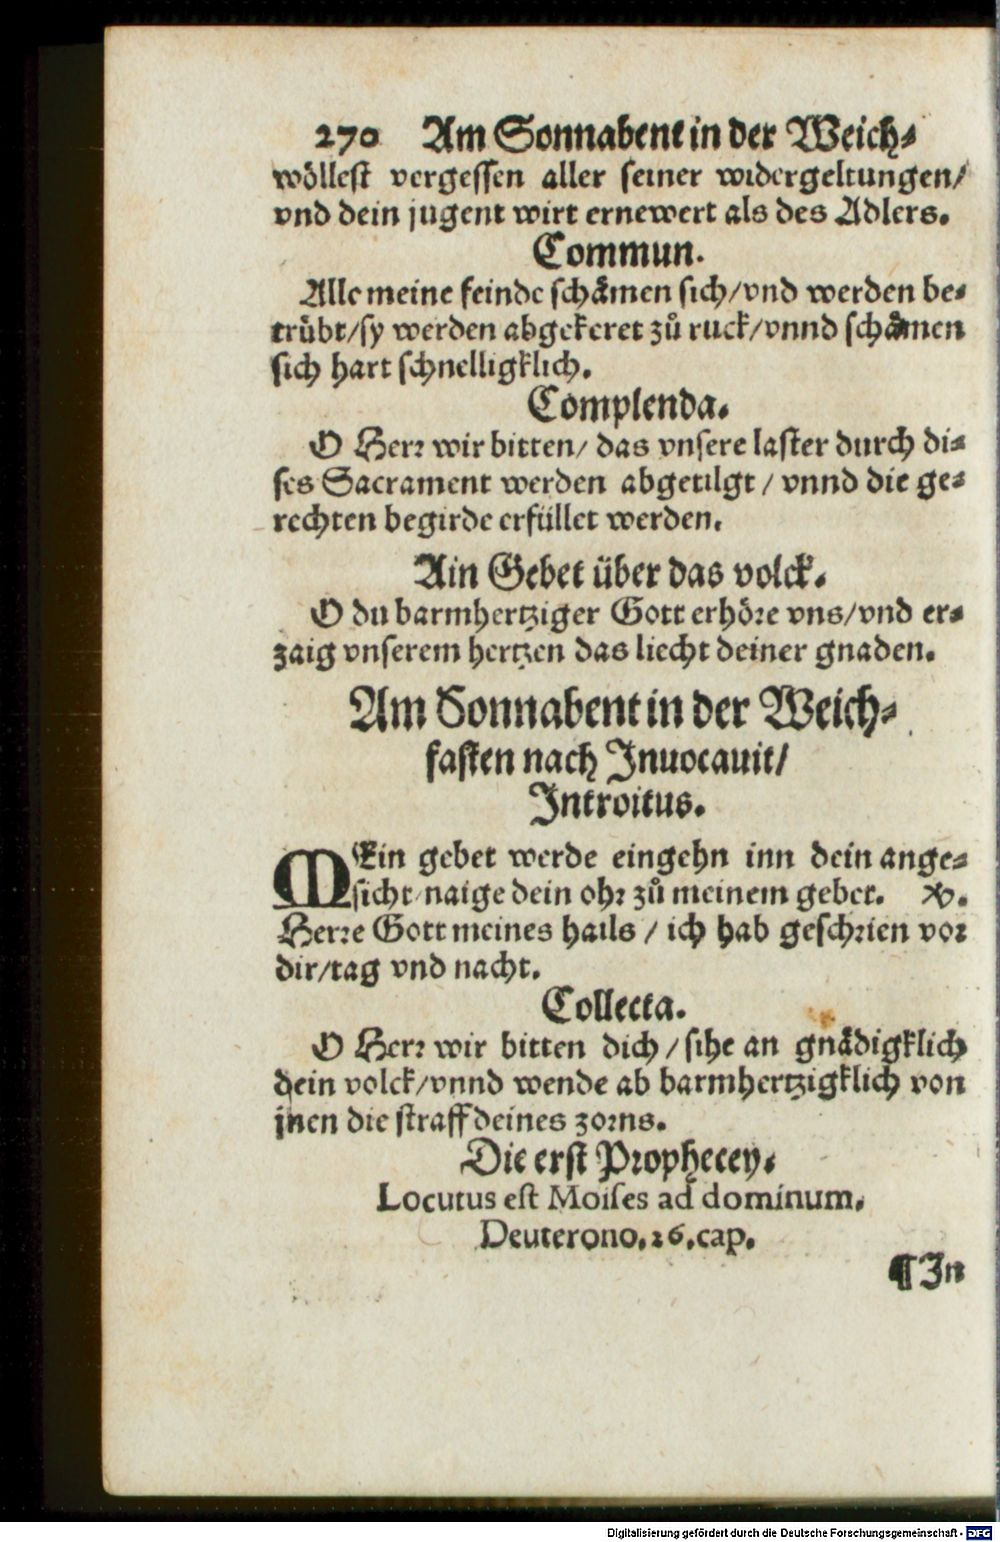 270 Am Sonnabent in der Weich⸗
wöllest vergessen aller seiner widergeltungen/
vnd dein jugent wirt ernewert als des Adlers.
Commun.
Alle meine feinde schåmen sich/vnd werden be⸗
trübt/sy werden abgekeret zů ruck/vnnd schåmen
sich hart schnelligklich.
Complenda.
O Herr wir bitten/ das vnsere laster durch di⸗
ses Sacrament werden abgetilgt / vnnd die ge⸗
rechten begirde erfüllet werden.
Ain Gebet über das volck.
O du barmhertziger Gott erhöre vns/vnd er⸗
zaig vnserem hertzen das liecht deiner gnaden.
Am Sonnabent in der Weich⸗
fasten nach Inuocauit/
Introitus.
MEin gebet werde eingehn inn dein ange⸗
sicht/naige dein ohr zů meinem gebet. V.
Herre Gott meines hails / ich hab geschrien vor
dir/tag vnd nacht.
Collecta.
O Herr wir bitten dich / sihe an gnådigklich
dein volck/vnnd wende ab barmhertzigklich von
jnen die straff deines zorns.
Die erst Prophecey.
Locutus est Moises ad dominum.
Deuterono.26.cap.
¶In
Digitalisierung gefördert durch die Deutsche Forschungsgemeinschaft - DFG